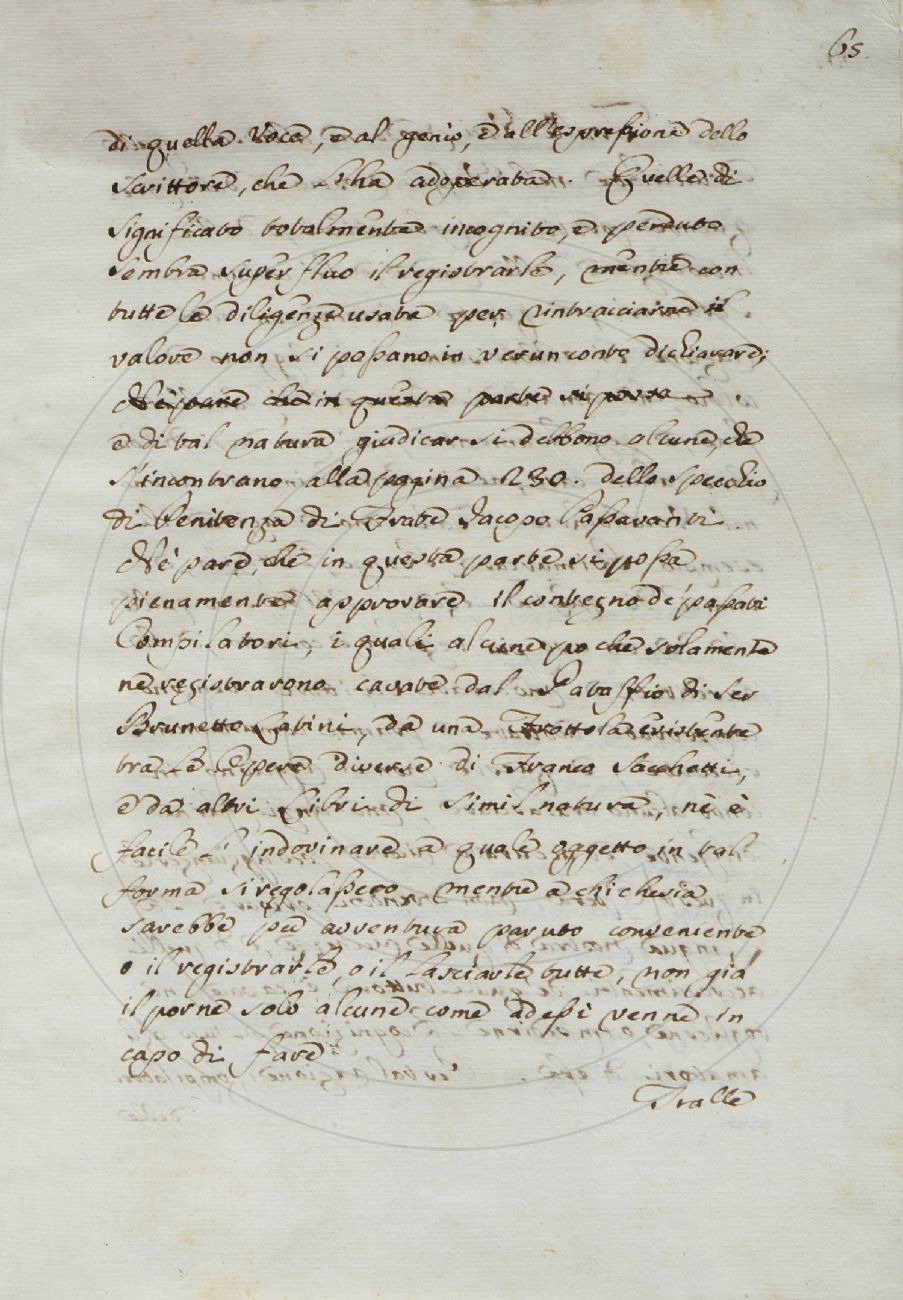 65.
di quella voce, e al genio, e all'espressione dello
Scrittore, che l'ha adoperata. Quelle di
significato totalmente incognito, e perduto
sembra superfluo il registrarle, mentre con
tutte le diligenze usate per rintracciarne il
valore non si possano in verun conto dichiarare;
Nè pare che in questa parte si possa
e di tal natura giudicar si debbono alcune, che
s'incontrano alla pagina 230. dello Specchio
di Penitenza di Frate Jacopo Passavanti.
Nè pare, che in questa parte si possa
pienamente approvare il contegno de' passati
Compilatori, i quali alcune poche solamente
ne registrarono cavate dal Pataffio di Ser
Brunetto Latini, da una Frottola esistente
tra le Opere diverse di Franco Sacchetti,
e da altri Libri di simil natura, nè è
facile l'indovinare a quale oggetto in tal
forma si regolassero, mentre a chi chesia
sarebbe per avventura paruto conveniente
o il registrarle, o il lasciarle tutte, non già
il porne solo alcune come ad essi venne in
capo di fare.
Tralle